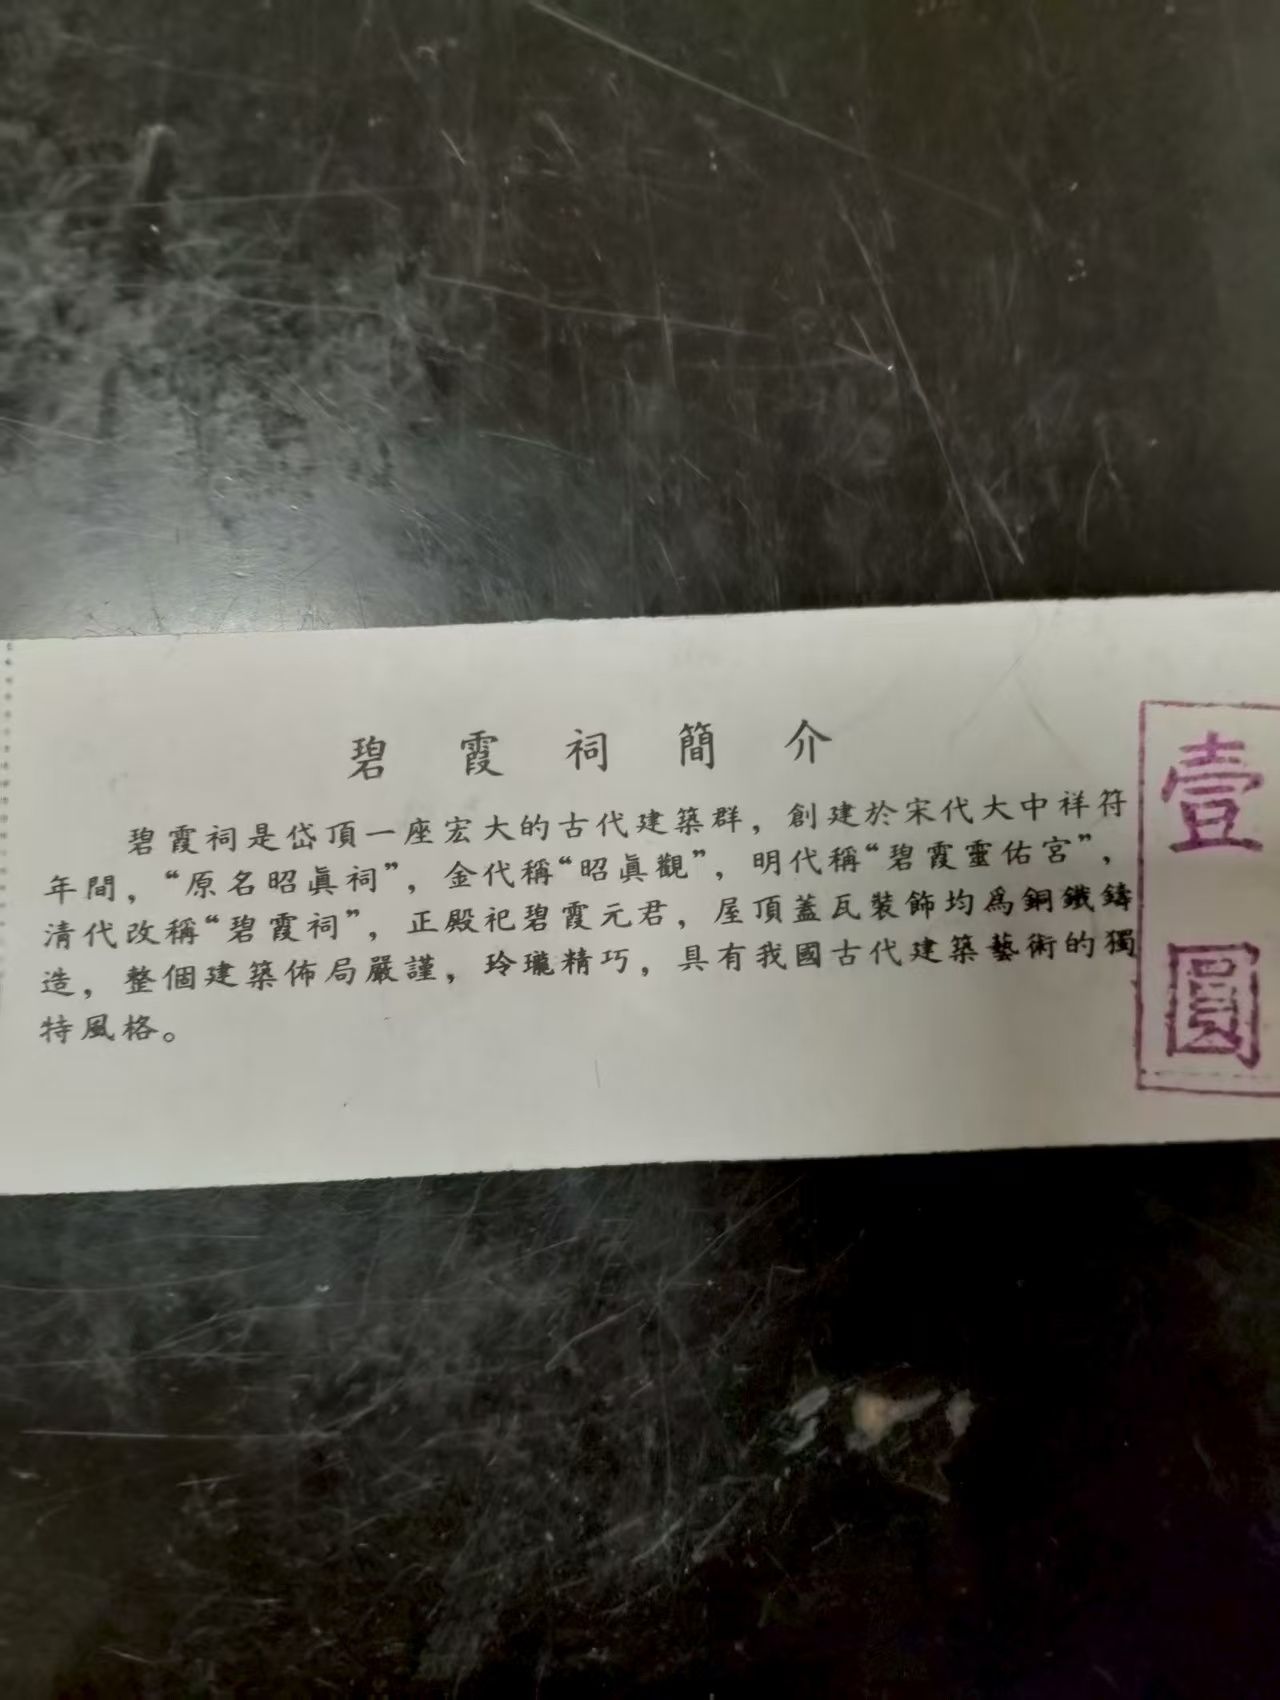 碧霞祠簡介
碧霞祠是岱頂一座宏大的古代建築群，創建於宋代大中祥符
年間，“原名昭眞祠”，金代稱“昭眞觀”，明代稱“碧霞靈佑宮”，
清代改稱“碧霞祠”，正殿祀碧霞元君，屋頂蓋瓦裝飾均爲銅鐵鑄
造，整個建築佈局嚴謹，玲瓏精巧，具有我國古代建築藝術的獨
特風格。
壹圓